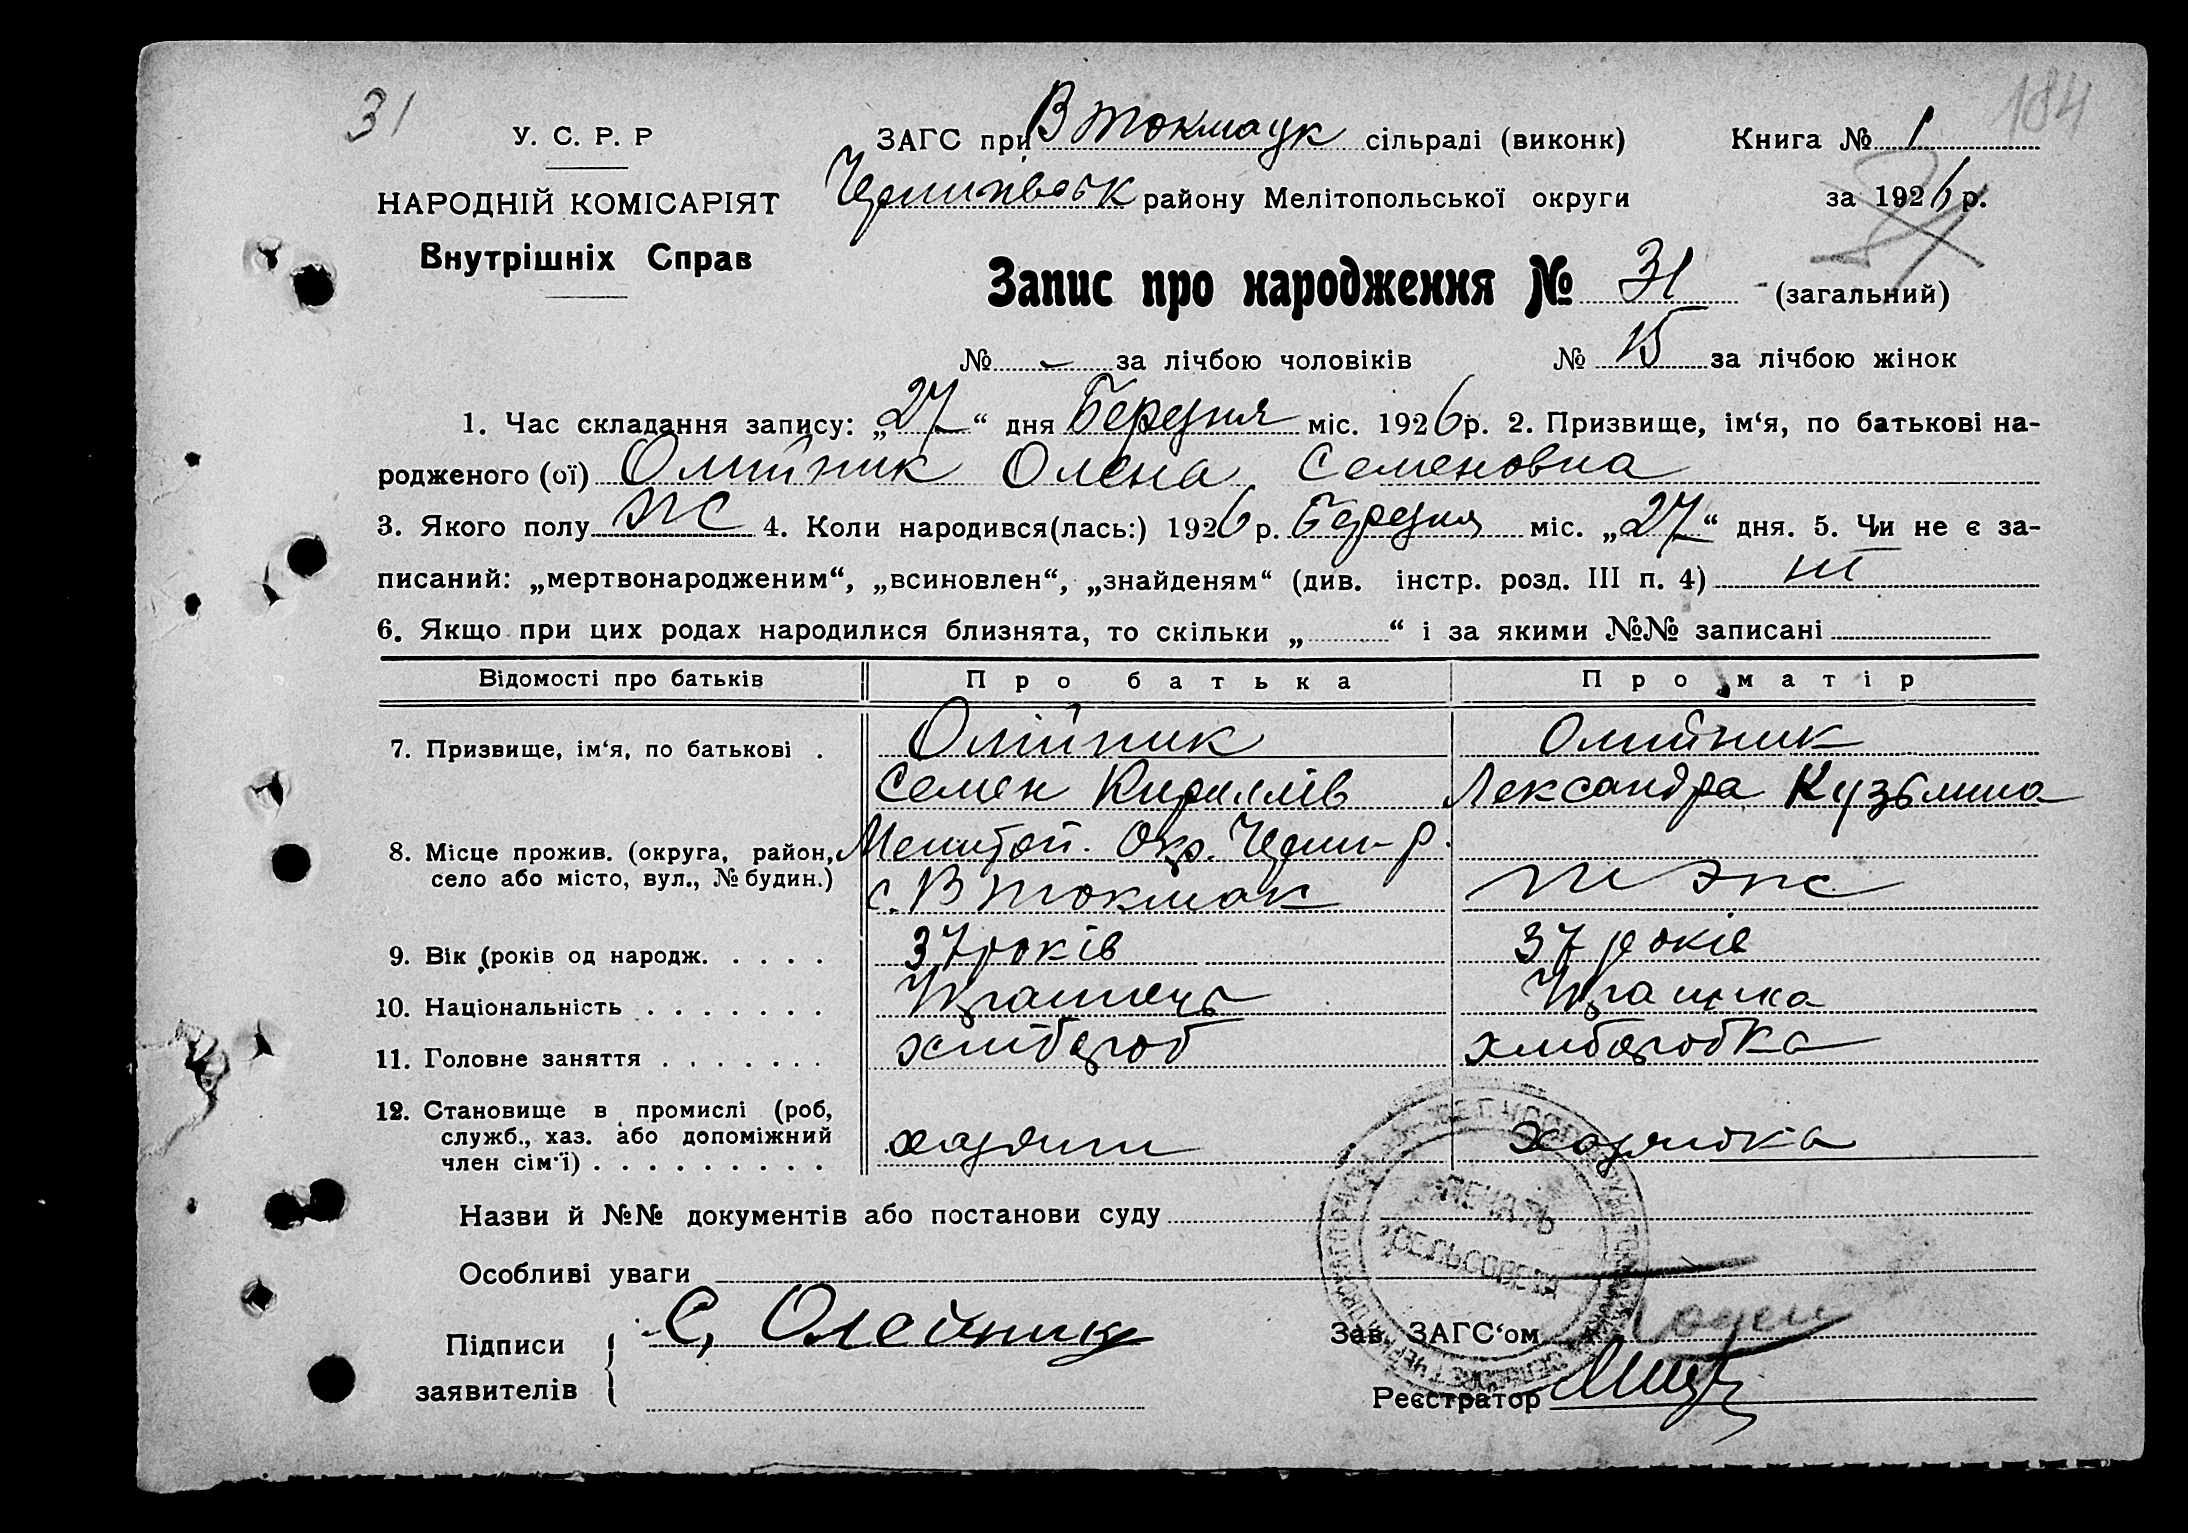 31
184
У. С. Р. Р
ЗАГС при В Токмацк сільраді (виконк)
Книга № 1
НАРОДНІЙ КОМІСАРІЯТ
Чернигівськ району Мелітопольської округи
за 1926 р.
Внутрішніх Справ
Запис про народження № 31 (загальний)
№ - за лічбою чоловіків № 15 за лічбою жінок
1. Час складання запису: „27“ дня Березня міс. 1926 р. 2. Призвище, ім‘я, по батькові на-
родженого (ої) Олійник Олена Семеновна
3. Якого полу жс 4. Коли народився(лась:) 1926 р. Березня міс. „27“ дня. 5. Чи не є за-
писаний: „мертвонародженим“, „всиновлен“, „знайденям“ (див. інстр. розд. III п. 4) ні
6. Якщо при цих родах народилися близнята, то скільки „ “ і за якими №№ записані
Відомості про батьків Про батька Про матір
7. Призвище, ім‘я, по батькові . Олійник Олийник
Семен Кирилів Лександра Кузьмина
8. Місце прожив. (округа, район, Мелитоп. Окр. Черни- р.
село або місто, вул., № будин.) с. В Токмак
9. Вік (років од народж. . . . . 37 років 37 років
10. Національність . . . . . . . Украинець Украинка
11. Головне заняття . . . . . . . хлібороб хлиборобка
12. Становище в промислі (роб,
служб., хаз. або допоміжний хазяин хазяйка
член сім‘ї) . . . . . . . . .
ПЕЧАТЬ
СЕЛЬСОВЕТА
Назви й №№ документів або постанови суду
Особливі уваги
Підписи С, Олейник Зав. ЗАГС‘ом
заявителів Реєстратор